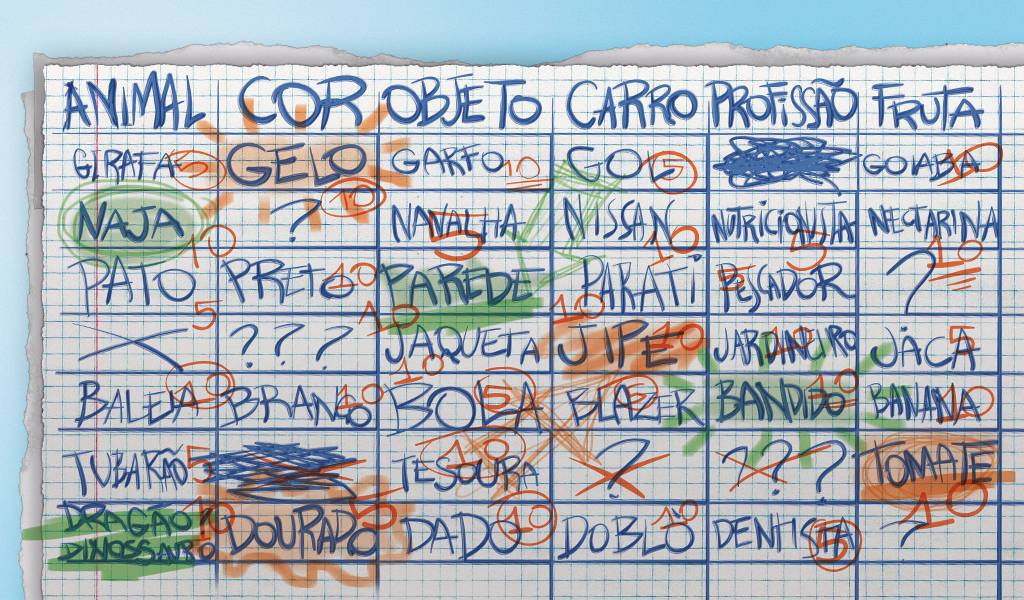 ANIMAL COR OBJETO CARRO PROFISSÃO FRUTA
GIRAFA 5 GELO GARFO 10 GOL 5 GOIABA 10
NAJA 10 ? 10 NAVALHA 5 NISSAN 10 NUTRICIONISTA 5 NECTARINA 10
PATO 5 PRETO 10 PAREDE 10 PARATI 10 PESCADOR 5 ?
X ? ? ? JAQUETA 10 JIPE 10 JARDINEIRO 10 JACA 5
BALEIA 10 BRANCO 10 BOLA 5 BLAZER 5 BANDIDO 10 BANANA 10
TUBARÃO 5 TESOURA 10 ? ? ? TOMATE 10
DRAGÃO DINOSSAURO 10 DOURADO 5 DADO 10 DOBLÔ 10 DENTISTA 5 ?